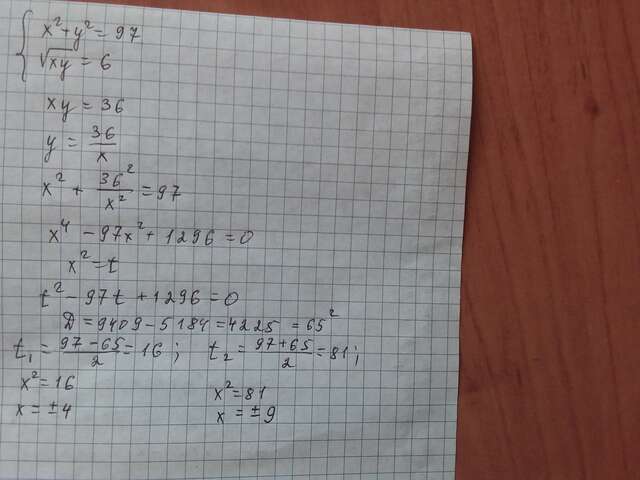 x² + y² = 97
√xy = 6
xy = 36
y = 36/x
x² + 36²/x² = 97
x⁴ - 97x² + 1296 = 0
x² = t
t² - 97t + 1296 = 0
D = 9409 - 5184 = 4225 = 65²
t₁ = (97 - 65)/2 = 16; t₂ = (97 + 65)/2 = 81;
x² = 16 x² = 81
x = ±4 x = ±9